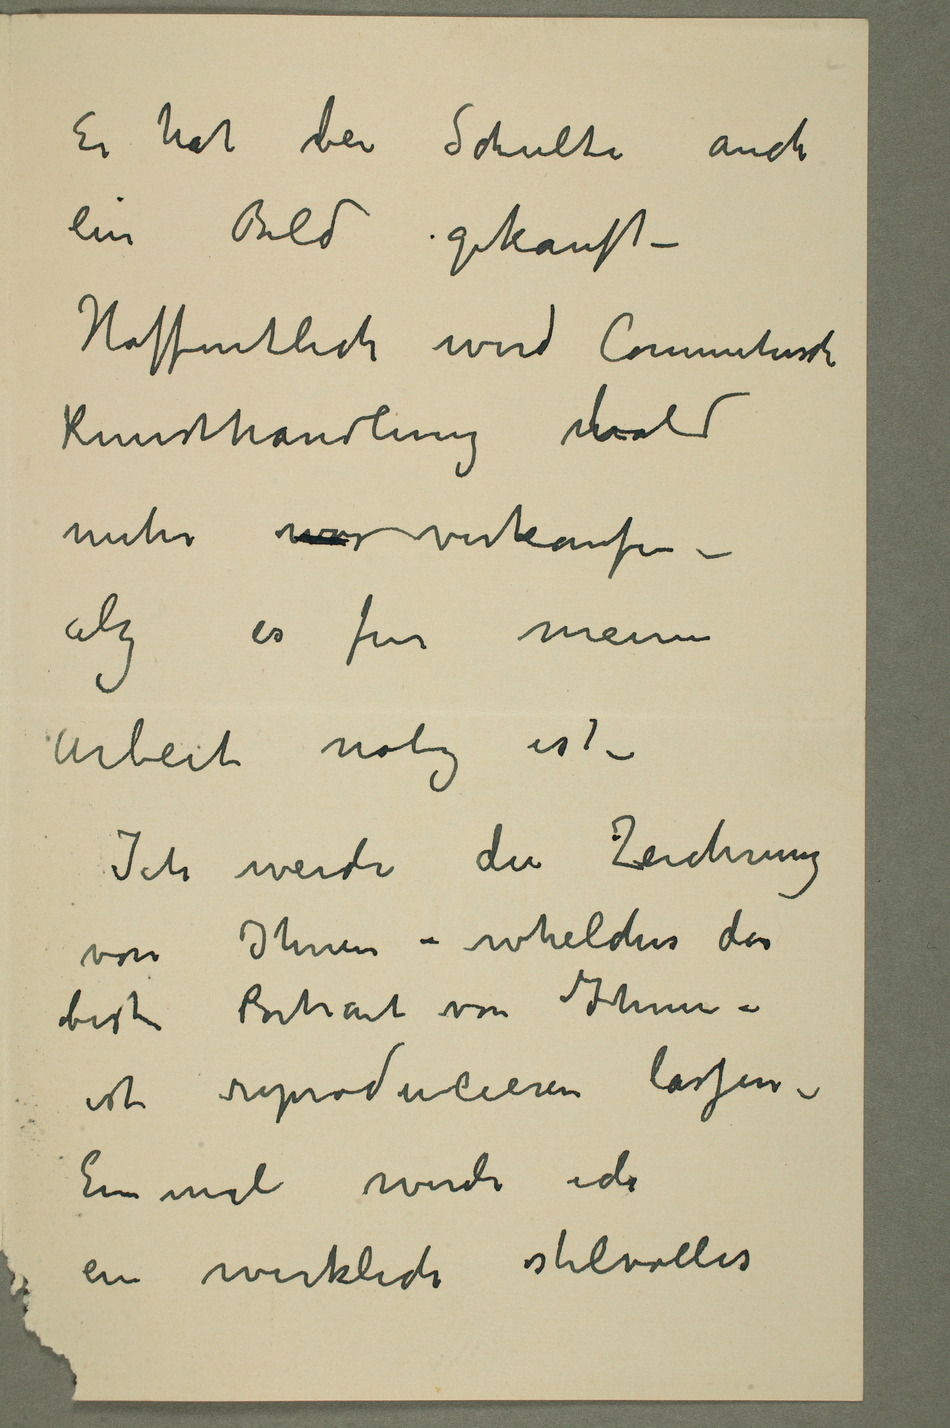 Er hat bei Schulte auch
ein Bild gekauft –
Hoffentlich wird Commetersche
Kunsthandlung bald
mehr was verkaufen –
alz es fur meine
Arbeit nötig ist –
Ich werde die Zeichnung
von Ihnen – whelches das
beste Portrait von Ihnen –
ist reproducieren lassen –
Einmal werde ich
ein wirklich stilvolles